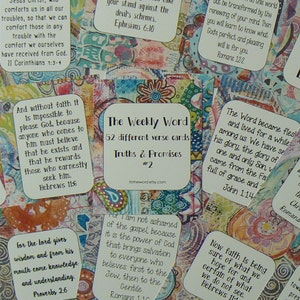 Jesus Christ, who
comforts us in all our
troubles, so that we can
comfort those in any
trouble with the
comfort we ourselves
have received from God.
II Corinthians 1:3-4
your stand against the
devil's schemes.
Ephesians 6:10
the world but be transformed by
the renewing of your mind. Then
you will learn to know what
God's perfect and pleasing
will is for you.
Romans 12:2
And without faith it
is impossible to
please God, because
anyone who comes to
him must believe
that he exists and
that he rewards
those who earnestly
seek him.
Hebrews 11:6
The Weekly Word
52 different verse cards
Truths & Promises
#2
The Word became flesh
and lived for a while
among us. We have seen
his glory, the glory of the
one and only Son,
came from the Father,
full of grace and
John 1:14
For the Lord gives
wisdom and from his
mouth come knowledge
and understanding.
Proverbs 2:6
I am not ashamed
of the gospel, because
it is the power of God
that brings salvation
to everyone who
believes: first to the
Jew, then to the
Gentile.
Romans 1:
Now faith is being
sure of what we
hope for
certain of
we do not
see.
Hebrews